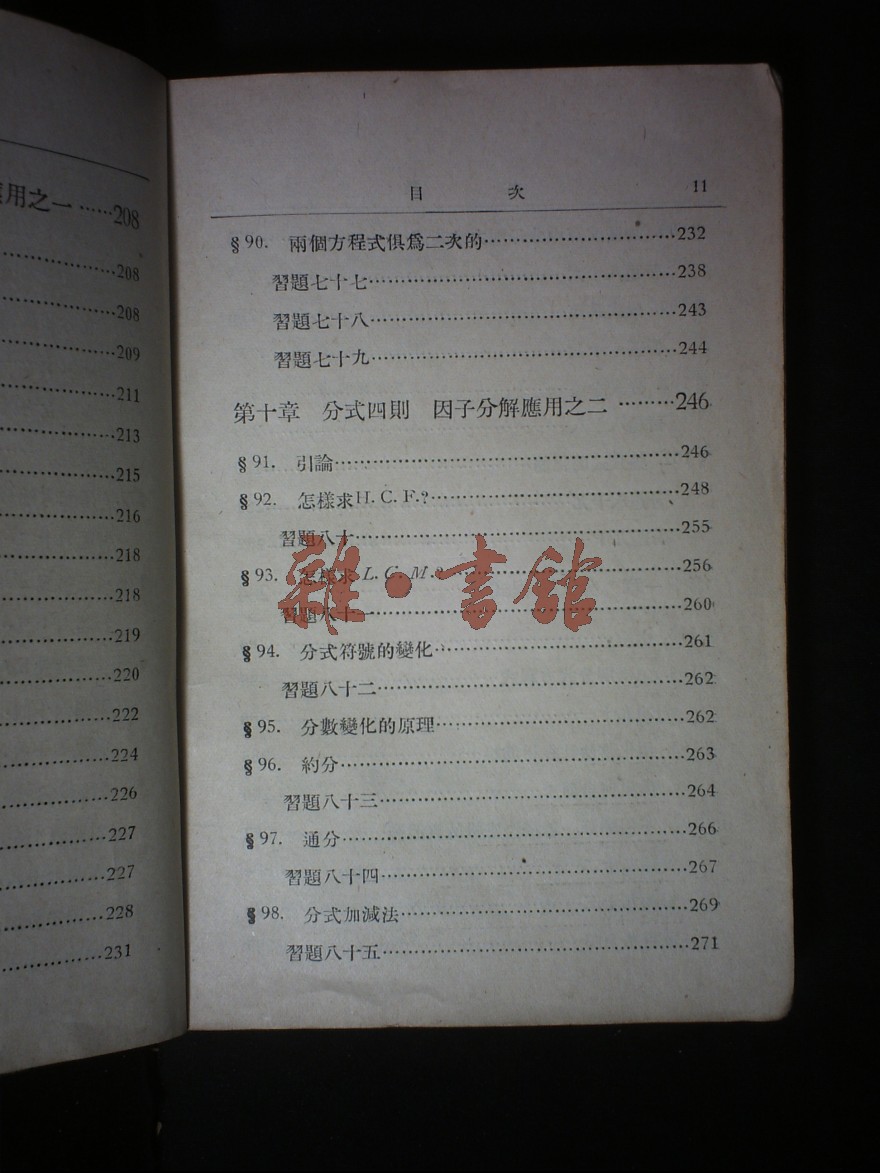 應用之一……208
208
208
209
211
213
215
216
218
218
219
220
222
224
226
227
227
228
231
目 次 11
§90. 兩個方程式俱爲二次的……232
習題七十七……238
習題七十八……243
習題七十九……244
第十章 分式四則 因子分解應用之二……246
§91. 引論……246
§92. 怎樣求H. C. F.?……248
習題八十……255
§93. 怎樣求 L. C. M.?……256
習題八十一……260
§94. 分式符號的變化……261
習題八十二……262
§95. 分數變化的原理……262
§96. 約分……263
習題八十三……264
§97. 通分……266
習題八十四……267
§98. 分式加減法……269
習題八十五……271
雜·書館